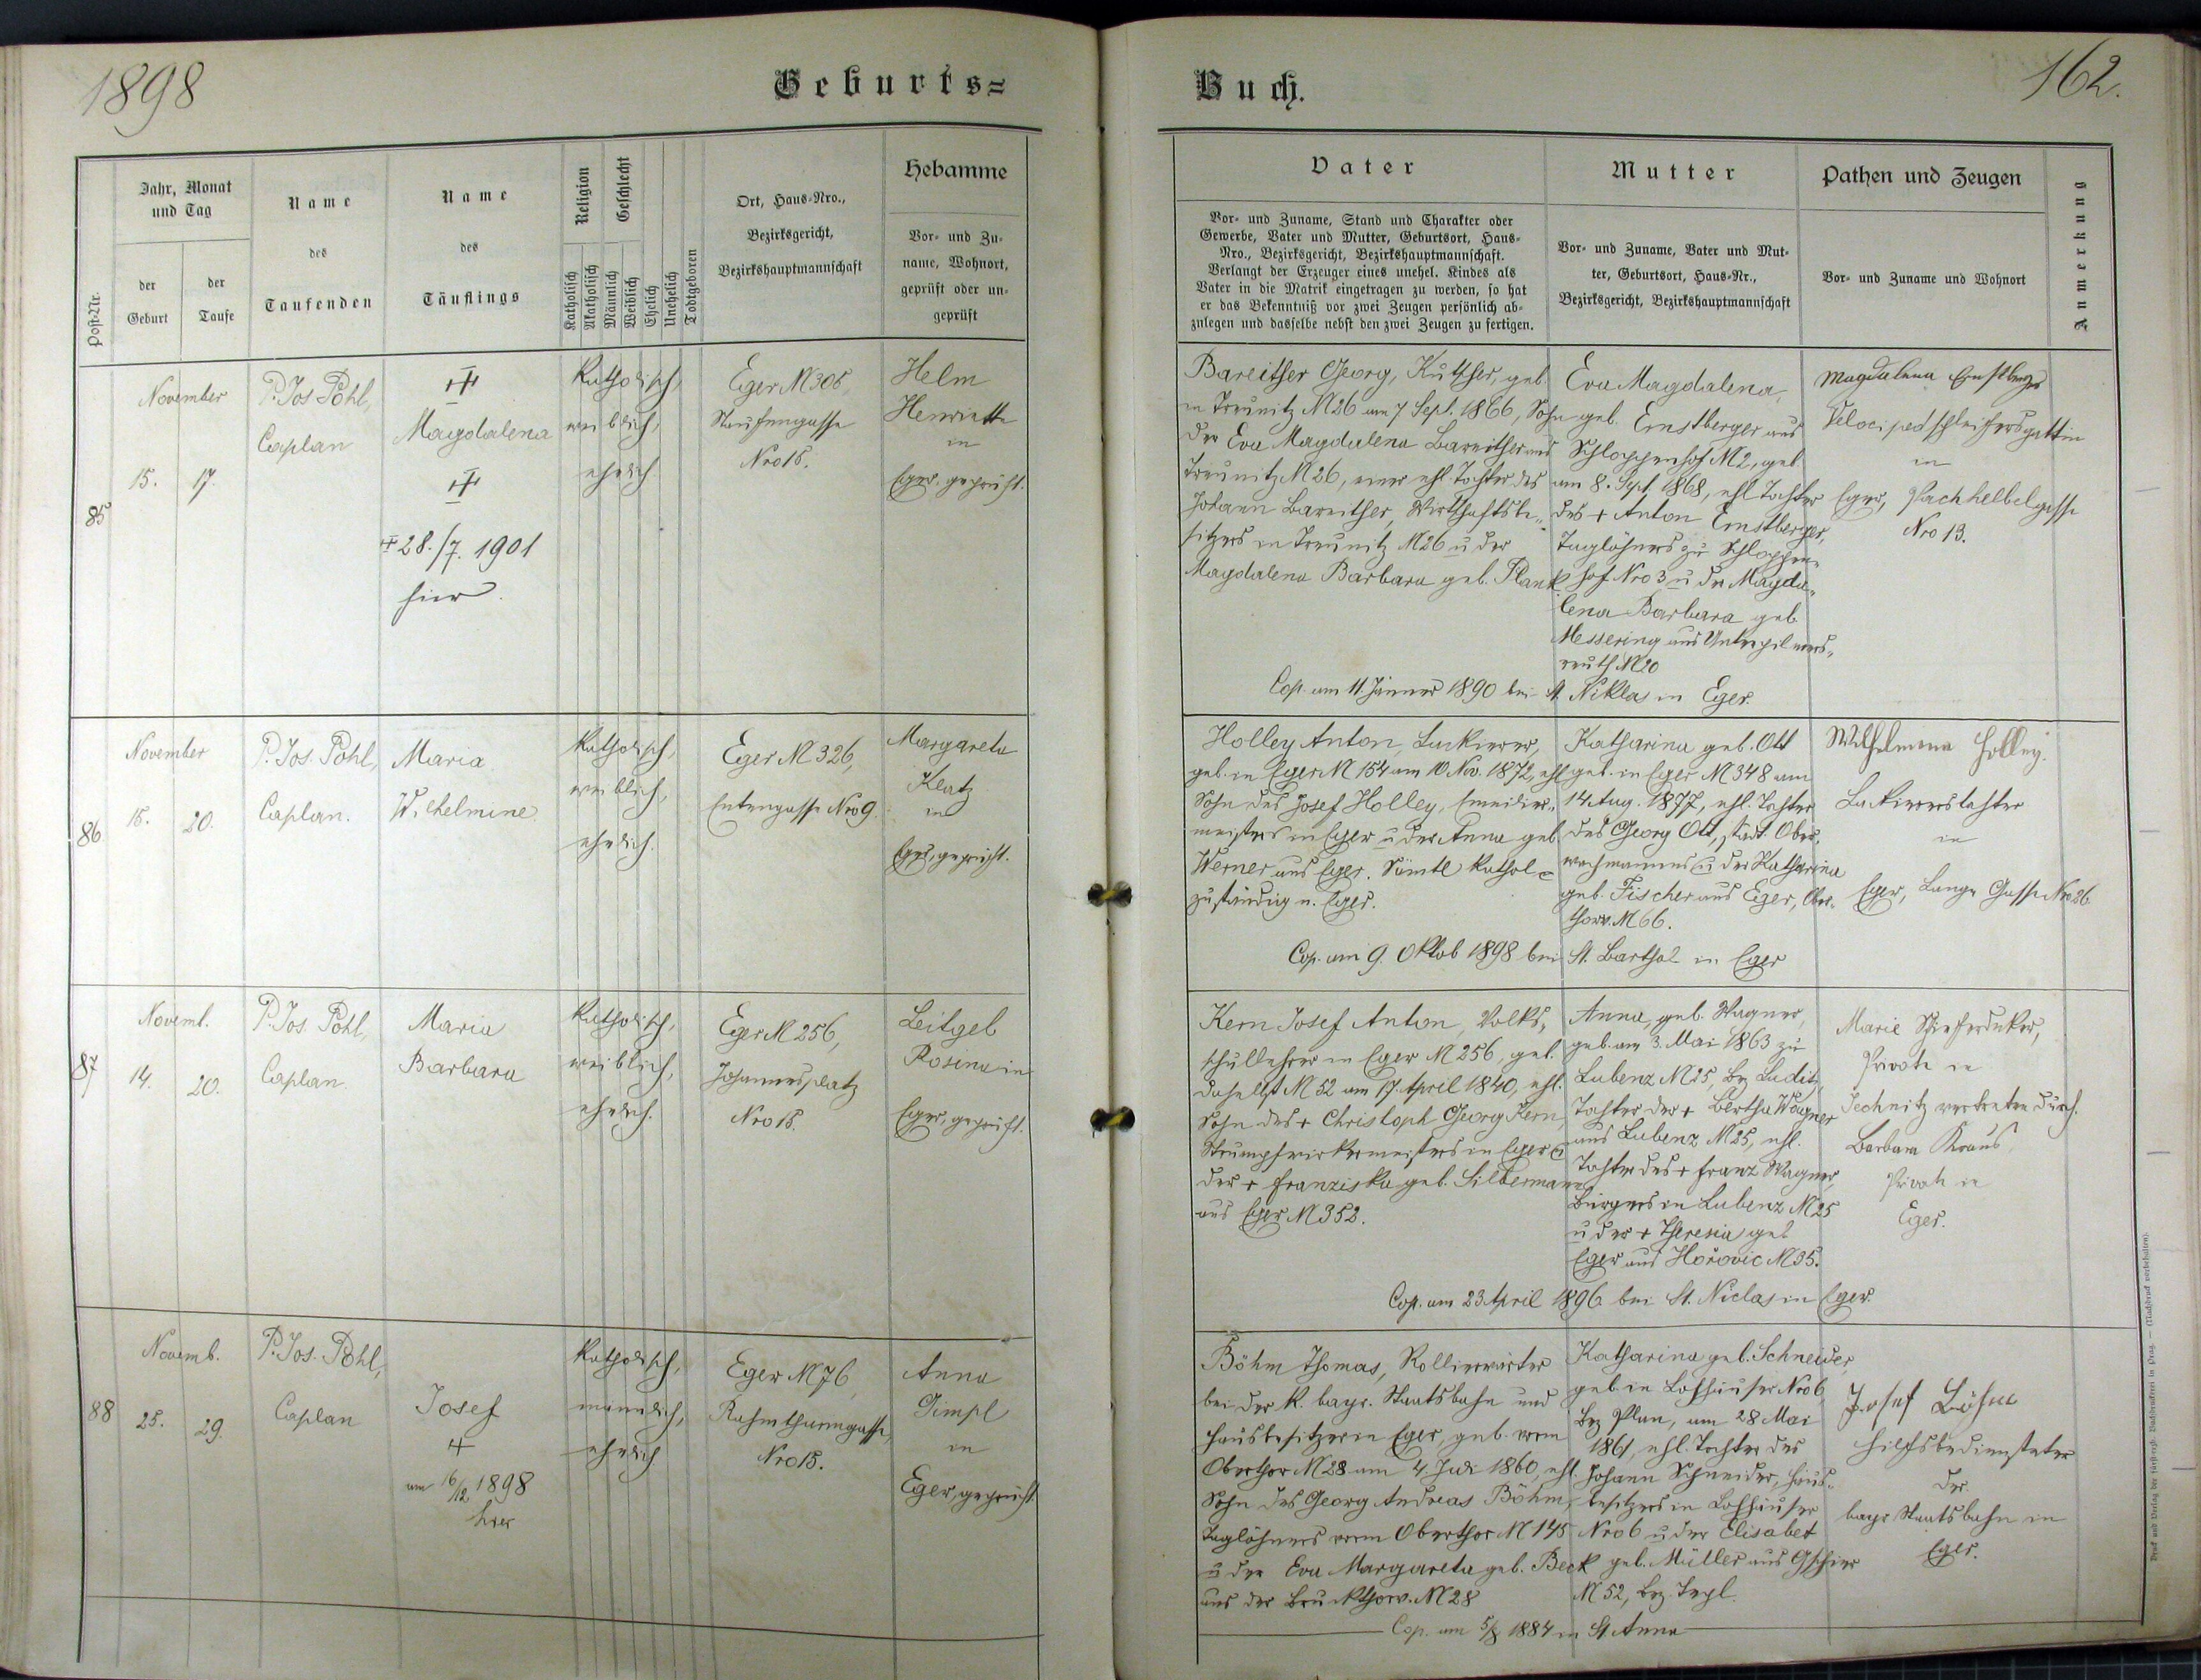 1898
Geburts=
Buch.
162.
Post-Nr.
Jahr, Monat
und Tag
der
Geburt
der
Taufe
Name
des
Taufenden
Name
des
Täuflings
Religion
Geschlecht
Katholisch
Akatholisch
Männlich
Weiblich
Ehelich
Unehelich
Todtgeboren
Ort, Haus-Nro.,
Bezirksgericht,
Bezirkshauptmannschaft
Hebamme
Vor- und Zu-
name, Wohnort,
geprüft oder un-
geprüft
Vater
Vor- und Zuname, Stand und Charakter oder
Gewerbe, Vater und Mutter, Geburtsort, Haus-
Nro., Bezirksgericht, Bezirkshauptmannschaft.
Verlangt der Erzeuger eines unehel. Kindes als
Vater in die Matrik eingetragen zu werden, so hat
er das Bekenntniß vor zwei Zeugen persönlich ab-
zulegen und dasselbe nebst den zwei Zeugen zu fertigen.
Mutter
Vor- und Zuname, Vater und Mut-
ter, Geburtsort, Haus-Nr.,
Bezirksgericht, Bezirkshauptmannschaft
Pathen und Zeugen
Vor- und Zuname und Wohnort
Anmerkung
85
November
15. 17.
P. Jos Pohl,
Caplan
Magdalena
28./7. 1901
hier.
Katholisch,
weiblich,
ehelich.
Eger N
Staufengasse
Helm
Henriette
in
Eger, geprüft.
Bareither Georg, Kutscher, geb.
in Treunitz N 26 am 7 Sept. 1866, Sohn
der Eva Magdalena Bareither aus
Treunitz N 26, einer ehl. Tochter des
Johann Bareither, Wirthschaftsbe-
sitzers in Treunitz N 26 u der
Magdalena Barbara geb. Plank
Eva Magdalena,
geb. Ernstberger aus
Schloppenhof N 2, geb.
am 8. Sept 1868, ehl Tochter
des + Anton Ernstberger,
Taglöhners zu Schloppen-
hof Nro 3 u der Magda-
lena Barbara geb.
Messering aus
reuth N
Cop. am 11. Jänner 1890 bei St. Niklas in Eger.
Magdalena Ernstberger
Velocipedschleifersgattin
in
Eger, Pachhelbelgasse
Nro 13.
86
November
20.
P. Jos. Pohl,
Caplan.
Maria
Wilhelmine
Katholisch,
weiblich,
ehelich.
Eger N 326,
Nro 9.
Margareta
Klatz
in
Eger, geprüft.
Holley Anton, Lackierer,
geb. in Eger N 154 am 10 Nov. 1872, ehl
Sohn des Josef Holley,
meisters in Eger u der Anna geb.
Werner aus Eger. Sämtl kathol u
zuständig n. Eger.
Katharina geb. Ott
geb. in Eger N 348 am
14 Aug. 1877, ehl. Tochter
des Georg Ott, städt. Ober-
wachmannes u der Katharina
geb. Fischer aus Eger, Ober-
thorv. N 66.
Cop. am 9. Oktob 1898 bei St. Barthol in Eger
Wilhelmina Holley.
Lackiererstochter
in
Eger, Lange Gasse Nro 26.
87
Novemb.
14. 20.
P. Jos. Pohl,
Caplan.
Maria
Barbara
Katholisch,
weiblich,
ehelich.
Eger N 256,
Johannesplatz
Leitgeb
Rosina in
Eger, geprüft.
Kern Josef Anton, Volks-
schullehrer in Eger N 256, geb.
daselbst N 52 am 17. April 1840, ehl.
Sohn des + Christoph Georg Kern,
Strumpfwirkermeisters in Eger u
der + Franziska geb. Silbermann
aus Eger N 352.
Anna, geb. Wagner,
geb. am 3. Mai 1863 zu
Lubenz N 25, Bz Luditz,
Tochter der + Bertha Wagner
aus Lubenz N 25, ehl.
Tochter des + Franz Wagner,
Bürgers in Lubenz N 25
u der + Theresia geb
Eger aus Hořovic N 35.
Cop. am 23 April 1896 bei St. Niclas in Eger.
Marie
Private in
Jechnitz vertreten durch.
Barbara Kraus,
Private in
Eger.
88
Novemb.
25. 29.
P. Jos. Pohl,
Caplan
Josef
+
am 16/12 1898
hier
Katholisch,
männlich,
ehelich
Eger N 76,
Rahmthurmgasse,
Anna
Gimpl
in
Eger, geprüft
Böhm Thomas,
bei der k. bayr. Staatsbahn und
Hausbesitzer in Eger, geb. vorm
Oberthor N 28 am 4. Juli 1860, ehl.
Sohn des Georg Andreas Böhm,
Taglöhners vorm Oberthor N 145
u der Eva Margareta geb. Beck
aus der Bruckthorv. N 28
Katharina geb. Schneider,
geb in Lohhäuser Nro 6,
Bez Plan, am 28 Mai
1861, ehl. Tochter des
Johann Schneider, Haus-
besitzers in Lohhäuser
Nro 6 u der Elisabet
geb. Müller aus
N 52, Bez. Tepl.
Cop. am 5/8 1884 in St. Anna
Josef Böhm
Hilfsbediensteter
der
bayr Staatsbahn in
Eger.